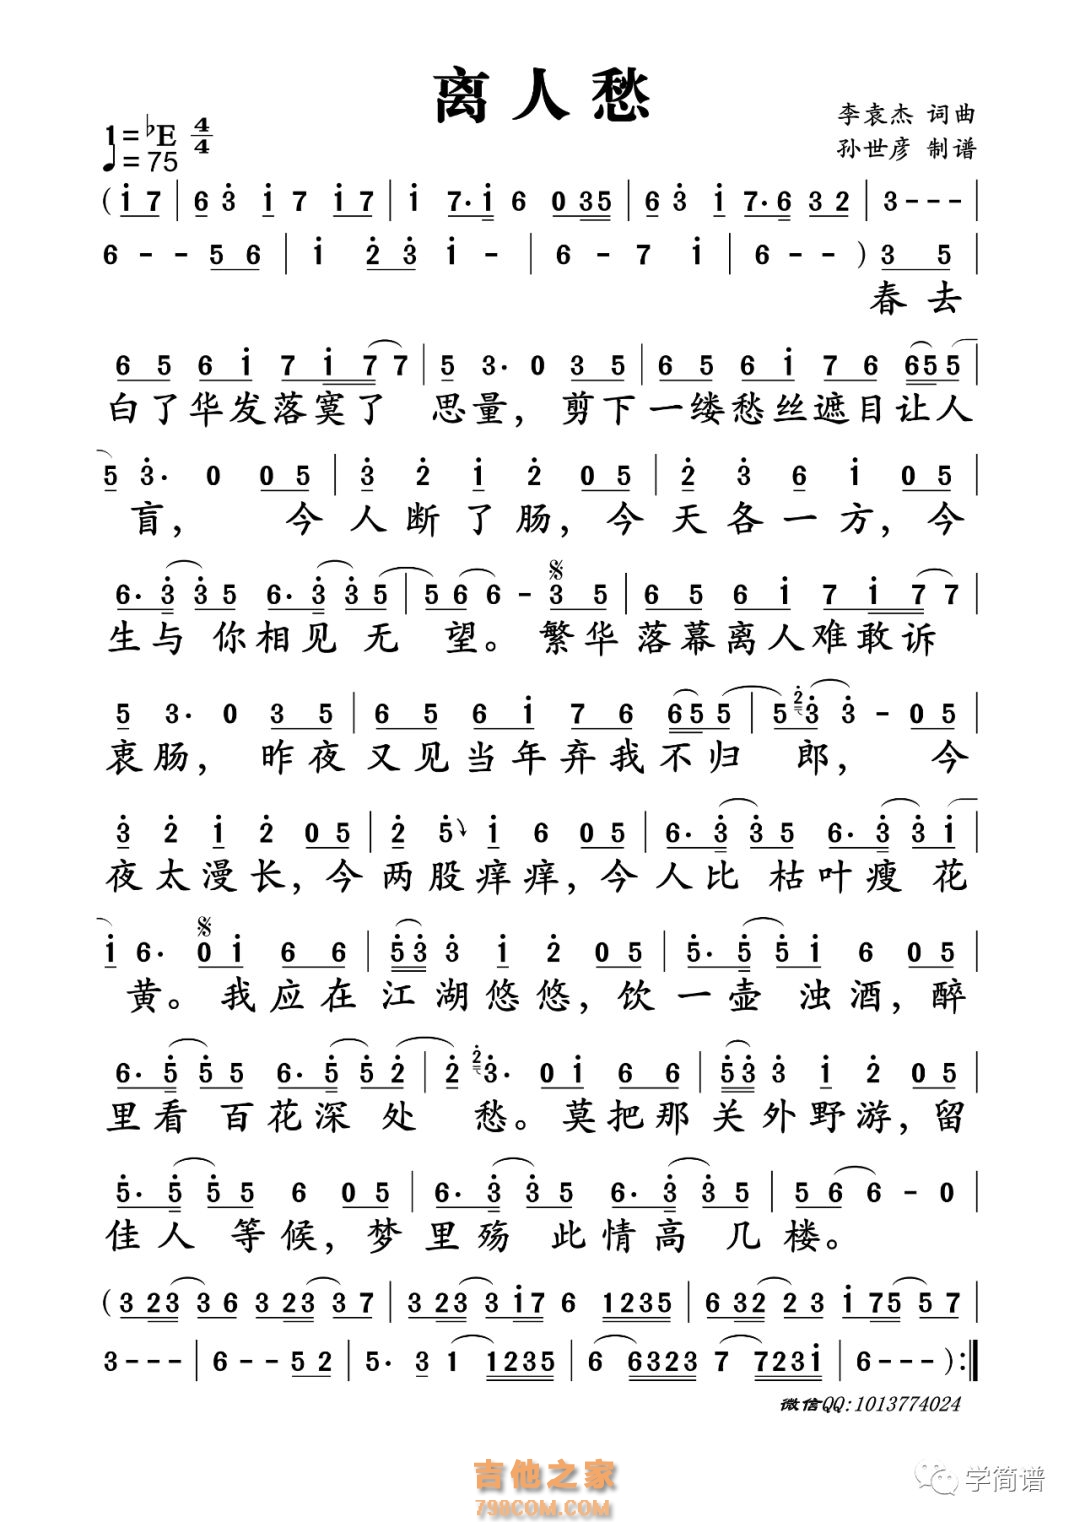 离人愁
李袁杰 词曲
1=♭E 4/4
♩=75
孙世彦 制谱
( i 7 | 6 3 i 7 i 7 | i 7· i 6 0 3 5 | 6 3 i 7· 6 3 2 | 3 - - - |
6 - - 5 6 | i 2 3 i - | 6 - 7 i | 6 - - ) 3 5 |
春去
6 5 6 i 7 i 7 7 | 5 3· 0 3 5 | 6 5 6 i 7 6 6 5 5 |
白了华发落寞了 思量，剪下一缕愁丝遮目让人
5 3· 0 0 5 | 3 2 i 2 0 5 | 2 3 6 i 0 5 |
盲， 今人断了肠，今天各一方，今
6· 3 3 5 6· 3 3 5 | 5 6 6 - 3 5 | 6 5 6 i 7 i 7 7 |
生与 你相见无 望。繁华落幕离人难敢诉
5 3· 0 3 5 | 6 5 6 i 7 6 6 5 5 | 5 2 3 3 - 0 5 |
衷肠，昨夜又见当年弃我不归 郎，今
3 2 i 2 0 5 | 2 5 i 6 0 5 | 6· 3 3 5 6· 3 3 i |
夜太漫长，今两股痒痒，今人比 枯叶瘦 花
i 6· 0 i 6 6 | 5 3 3 i 2 0 5 | 5· 5 5 i 6 0 5 |
黄。我应在江湖悠悠，饮一壶 浊酒，醉
6· 5 5 5 6· 5 5 2 | 2 2 3· 0 i 6 6 | 5 3 3 i 2 0 5 |
里看 百花深 处 愁。莫把那关外野游，留
5· 5 5 5 6 0 5 | 6· 3 3 5 6· 3 3 5 | 5 6 6 - 0 |
佳人 等候，梦里殇 此情高 几楼。
( 3 2 3 3 6 3 2 3 3 7 | 3 2 3 3 i 7 6 1 2 3 5 | 6 3 2 2 3 i 7 5 5 7 |
3 - - - | 6 - - 5 2 | 5· 3 1 1 2 3 5 | 6 6 3 2 3 7 7 2 3 i | 6 - - - ) :|
微信QQ:1013774024
吉他之家
798COM.COM
学简谱